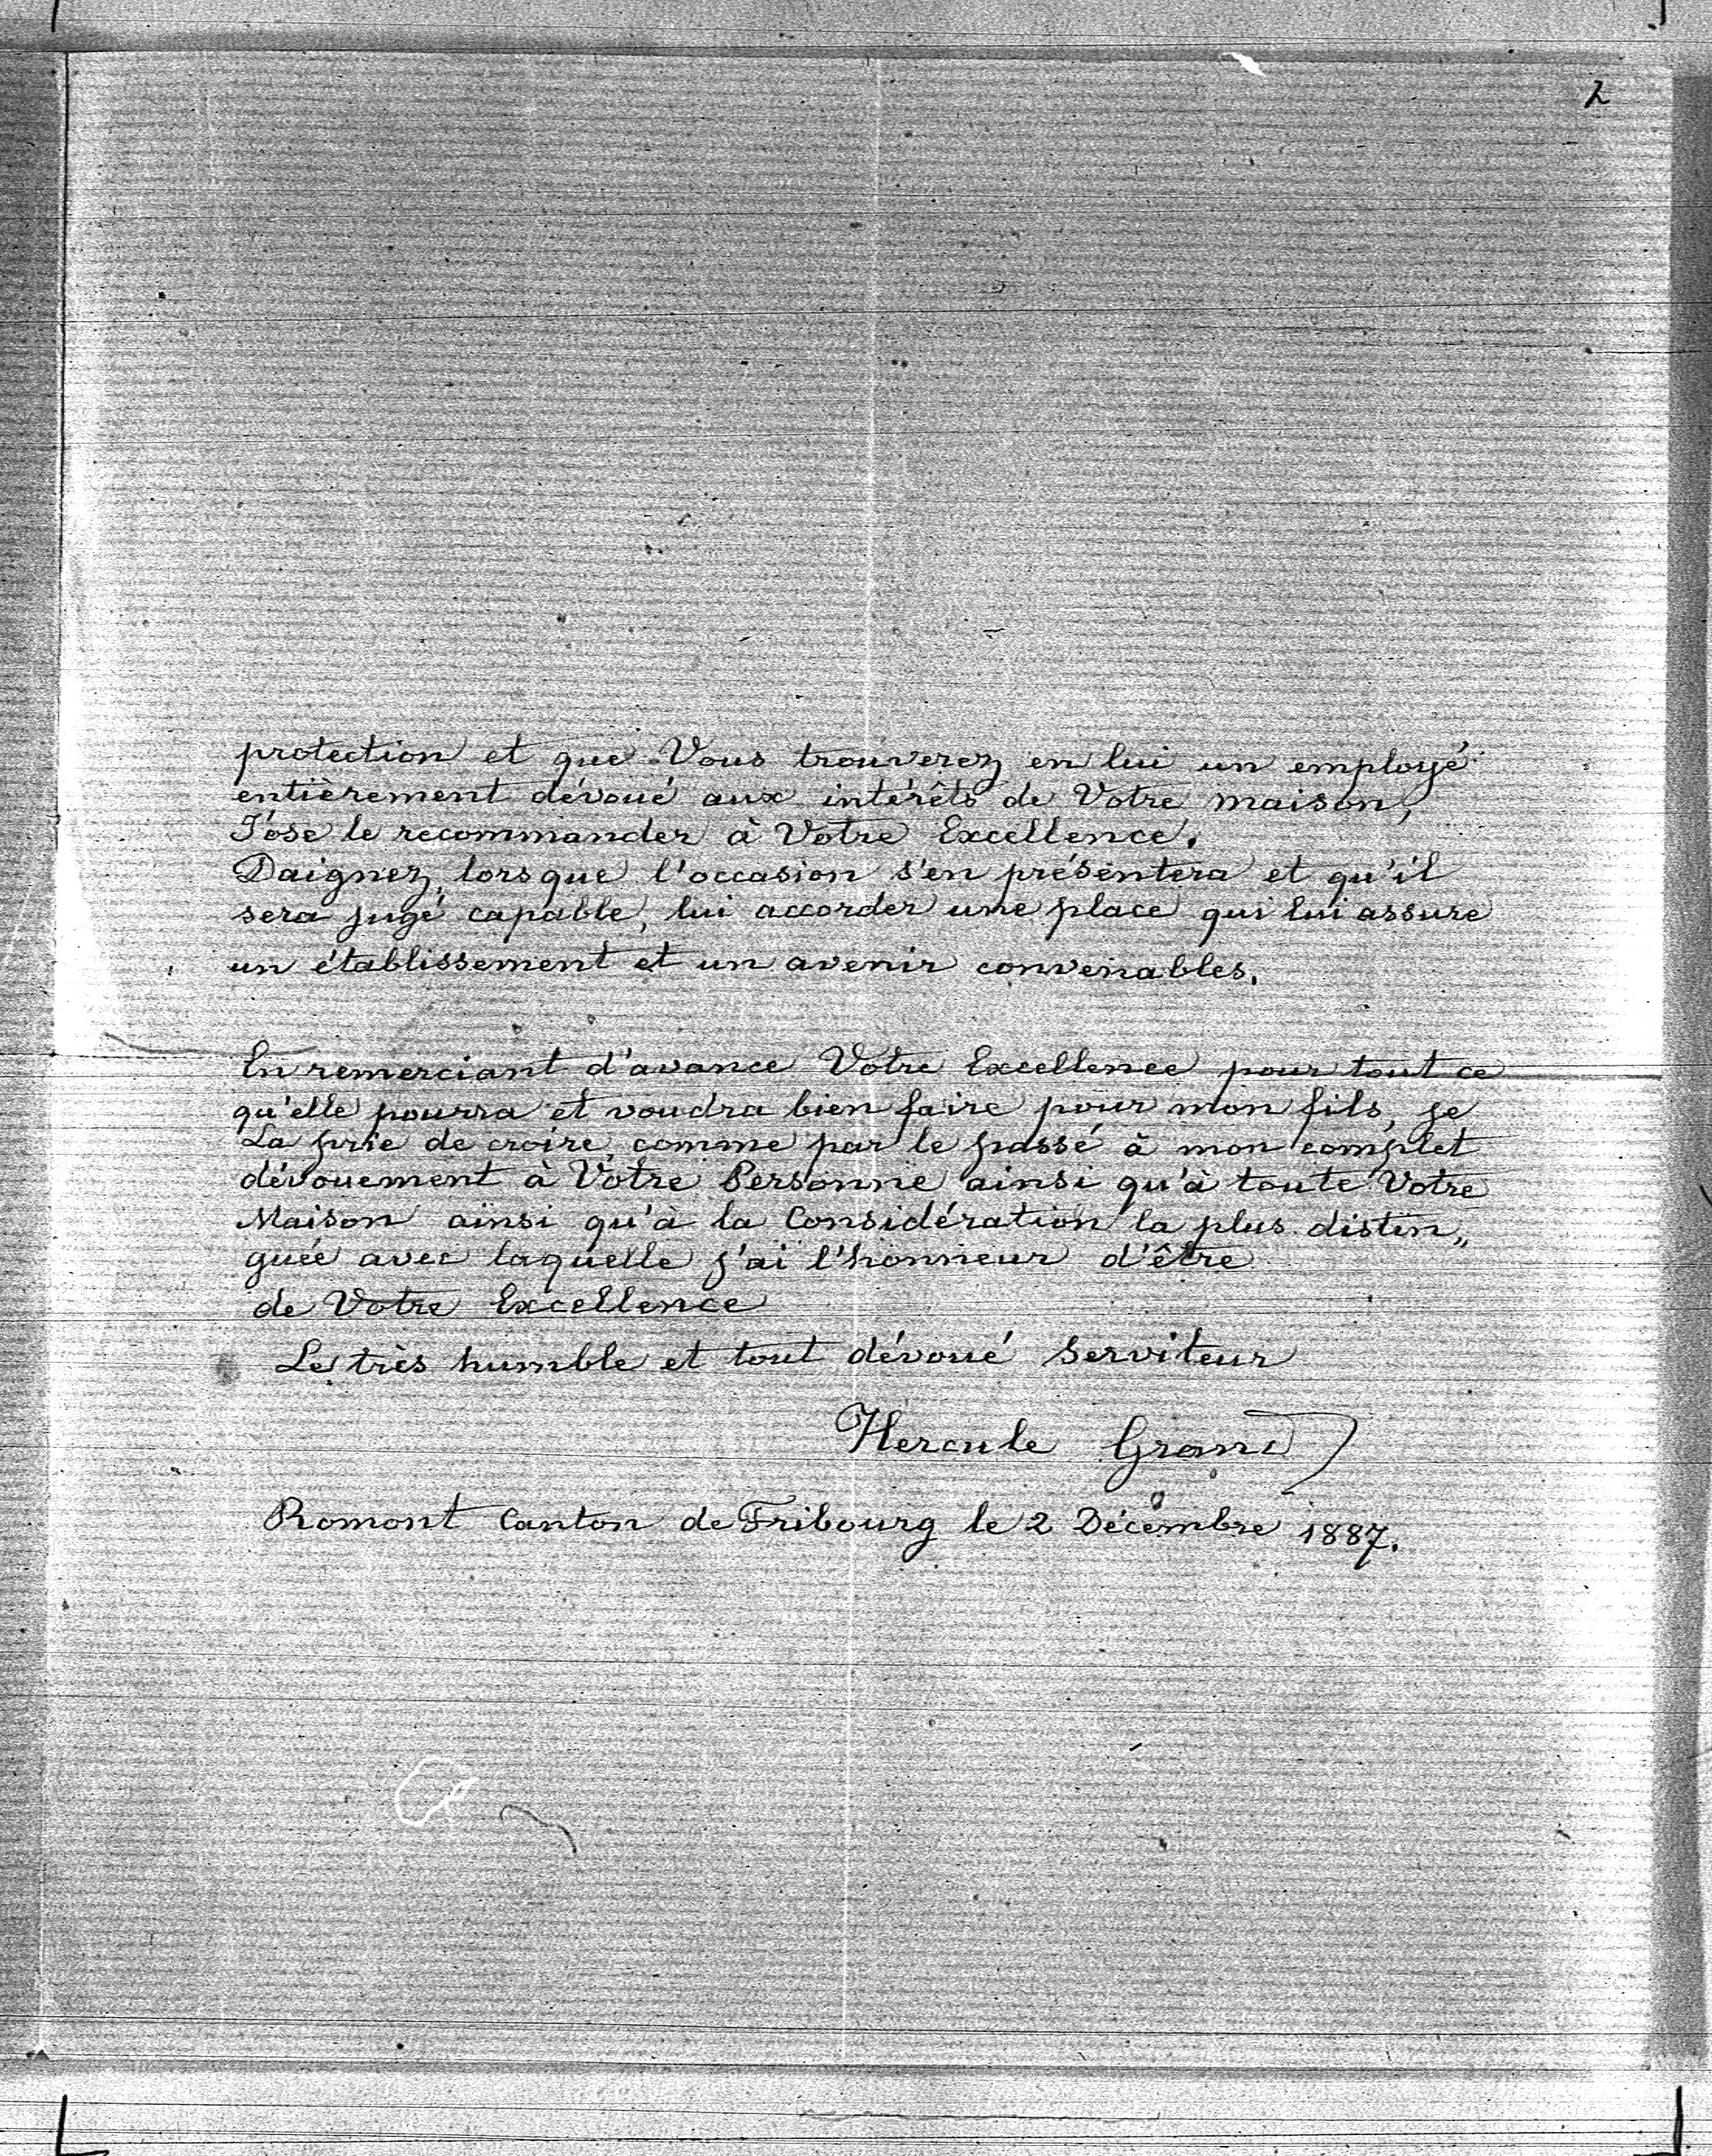 2
protection et que Vous trouverez en lui un employé
entièrement dévoué aux intérêts de Votre maison,
J'ose le recommander à Votre Excellence.
Daignez, lorsque l'occasion s'en présentera et qu'il
sera jugé capable, lui accorder une place qui lui assure
un établissement et un avenir convenables.
En remerciant d'avance Votre Excellence pour tout ce
qu'elle pourra et voudra bien faire pour mon fils, je
La prie de croire, comme par le passé à mon complet
dévouement à Votre Personne ainsi qu'à toute Votre
Maison ainsi qu'à la Considération la plus distin„
guée avec laquelle j'ai l'honneur d'être
de Votre Excellence
Le très humble et tout dévoué Serviteur
Hercule Grand
Romont Canton de Fribourg le 2 Décembre 1887.